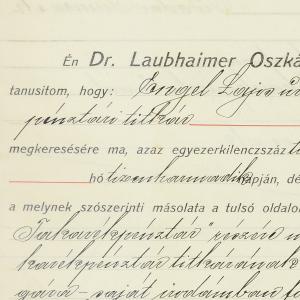 Én Dr. Laubhaimer Oszká
tanusitom, hogy: Engel Lajos ur
pénztári titkár
megkeresésére ma, azaz egyezerkilenczszáz t
hó tizenharmadik napján, dé
a melynek szószerinti másolata a tulsó oldalo
Takarékpénztár" részv
karékpénztár titkárának
gává - saját irodámban